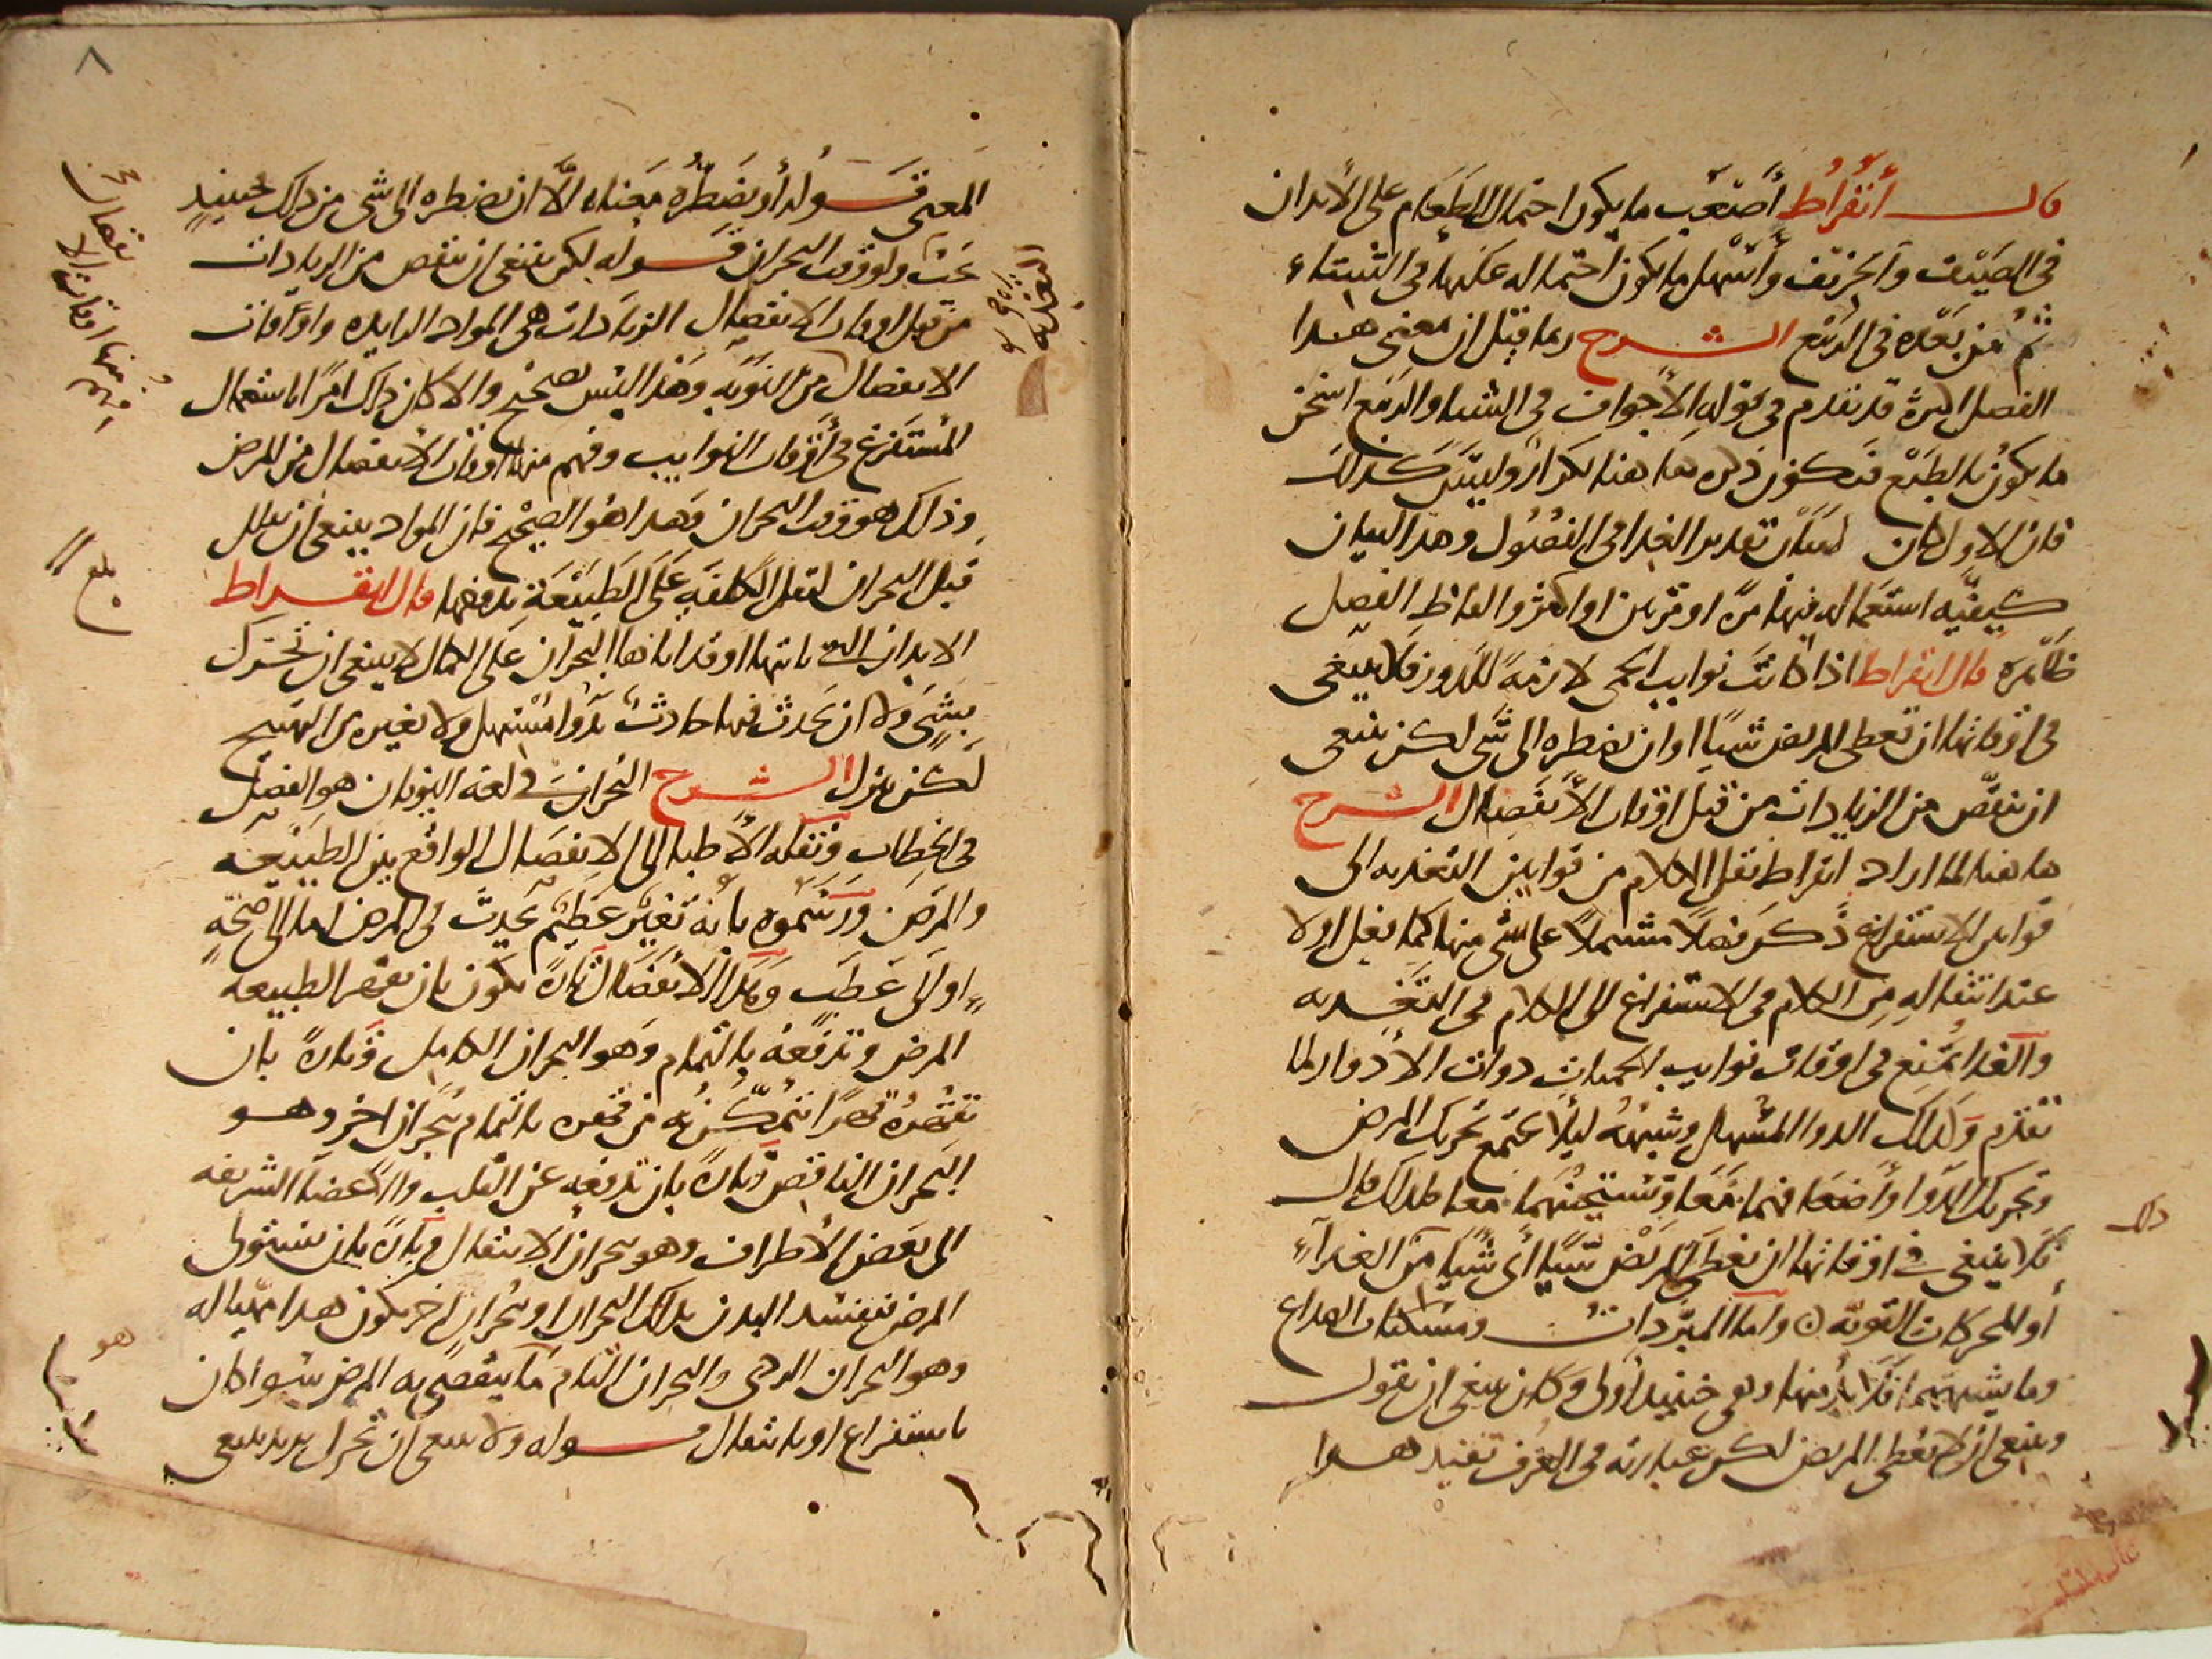 قال أبقراط أصعب ما يكون احتمال الطعام على الأبدان
في الصيف والخريف وأسهل ما يكون احتماله عليها في الشتاء
ثم من بعده في الربيع الشرح ربما قيل ان معنى هذا
الفصل لمرة قد تقدم في قوله الأجواف في الشتاء والربيع اسخن
ما يكون بالطبع فيكون ذكره ها هنا تكرارا وليس كذلك
فان الاول كان لبيان تقدير الغذا في الفصول وهذا لبيان
كيفية استعماله فيها مرة او مرتين او اكثر والفاظ الفصل
ظاهرة قال ابقراط اذا كانت نوايب الحمى لازمة للدور فلا ينبغي
في اوقاتها ان تعطى المريض شيئا او ان تضطره الى شي لكن ينبغي
ان تنقص من الزيادات من قبل اوقات الانفصال الشرح
ها هنا لما اراد ابقراط نقل الكلام من قوانين التغذيه الى
قوانين الاستفراغ ذكر فصلا مشتملا على شي منها كما فعل اولا
عند انتقاله من الكلام في الاستفراغ الى الكلام في التغذيه
والغذا يمنع في اوقات نوايب الحميات ذوات الادوار لما
تقدم وكذلك الدوا المسهل وشبهه ليلا يجتمع تحريك المرض
وتحريك الدوا واضعافهما معا وتسخينهما معا فلذلك قال
فلا ينبغي في اوقاتها ان تعطى المريض شيئا أي شيئا من الغذاء
أو المحركات القويه واما المبردات ومسكنات الصداع
وما يشبههما فلا بد منها وهي حينيد أولى وكان ينبغي ان يقول
وينبغي ان لا يعطى المريض لكن عبارته في العرف تفيد هذا
ذلك
٨
المعنى قوله أو يضطره معناه الا ان يضطره الى شي من ذلك فحينيد
يجب ولو وقت البحران قوله لكن ينبغي ان ينقص من الزيادات
من قبل اوقات الانفصال الزيادات هي المواد الزايده واوقات
الانفصال من النوبة وهذا ليس بصحيح والا كان ذلك امرا باستعمال
المستفرغ في أوقات النوايب وفهم منها اوقات الانفصال من المرض
وذلك هو وقت البحران وهذا هو الصحيح فان المواد ينبغي ان تقلل
قبل البحران لتقل الكلفة على الطبيعة بدفعها قال ابقراط
الابدان التي ياتيها او قد اتاها البحران على الكمال لا ينبغي ان تحرك
بشي ولا ان يحدث فيها حادث بدوا مسهل ولا بغيره من التهييج
لكن تترك الشرح البحران في لغة اليونان هو الفصل
في الخطاب ونقله الأطبا الى الانفصال الواقع بين الطبيعه
والمرض ورسموه بانه تغير عظيم يحدث في المرض اما الى صحة
او الى عطب وهذا الانفصال تارة يكون بان تقهر الطبيعه
المرض وتدفعه بالتمام وهو البحران الكامل وتارة بان
تقهره قهرا تتمكن به من قهره بالتمام ببحران اخر وهو
البحران الناقص وتارة بان تدفعه عن القلب والاعضا الشريفه
الى بعض الأطراف وهو بحران الانتقال وتارة بان يستولى
المرض فيفسد البدن بذلك البحران او ببحران اخر يكون هذا مهيا له
وهو البحران الردي والبحران التام ما ينقضي به المرض سوا كان
باستفراغ او بانتقال قوله ولا ينبغي ان تحرك يريد ينبغي
بلغ
هو